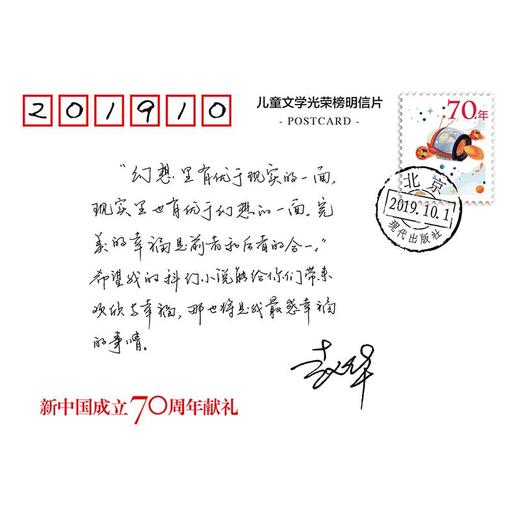 201910
儿童文学光荣榜明信片
- POSTCARD -
70年
北京
2019.10.1
现代出版社
“幻想里有优于现实的一面,
现实里也有优于幻想的一面。完
美的幸福是前者和后者的合一。”
希望我的科幻小说能给你们带来
欢欣与幸福,那也将是我最感幸福
的事情。
赵华
新中国成立70周年献礼